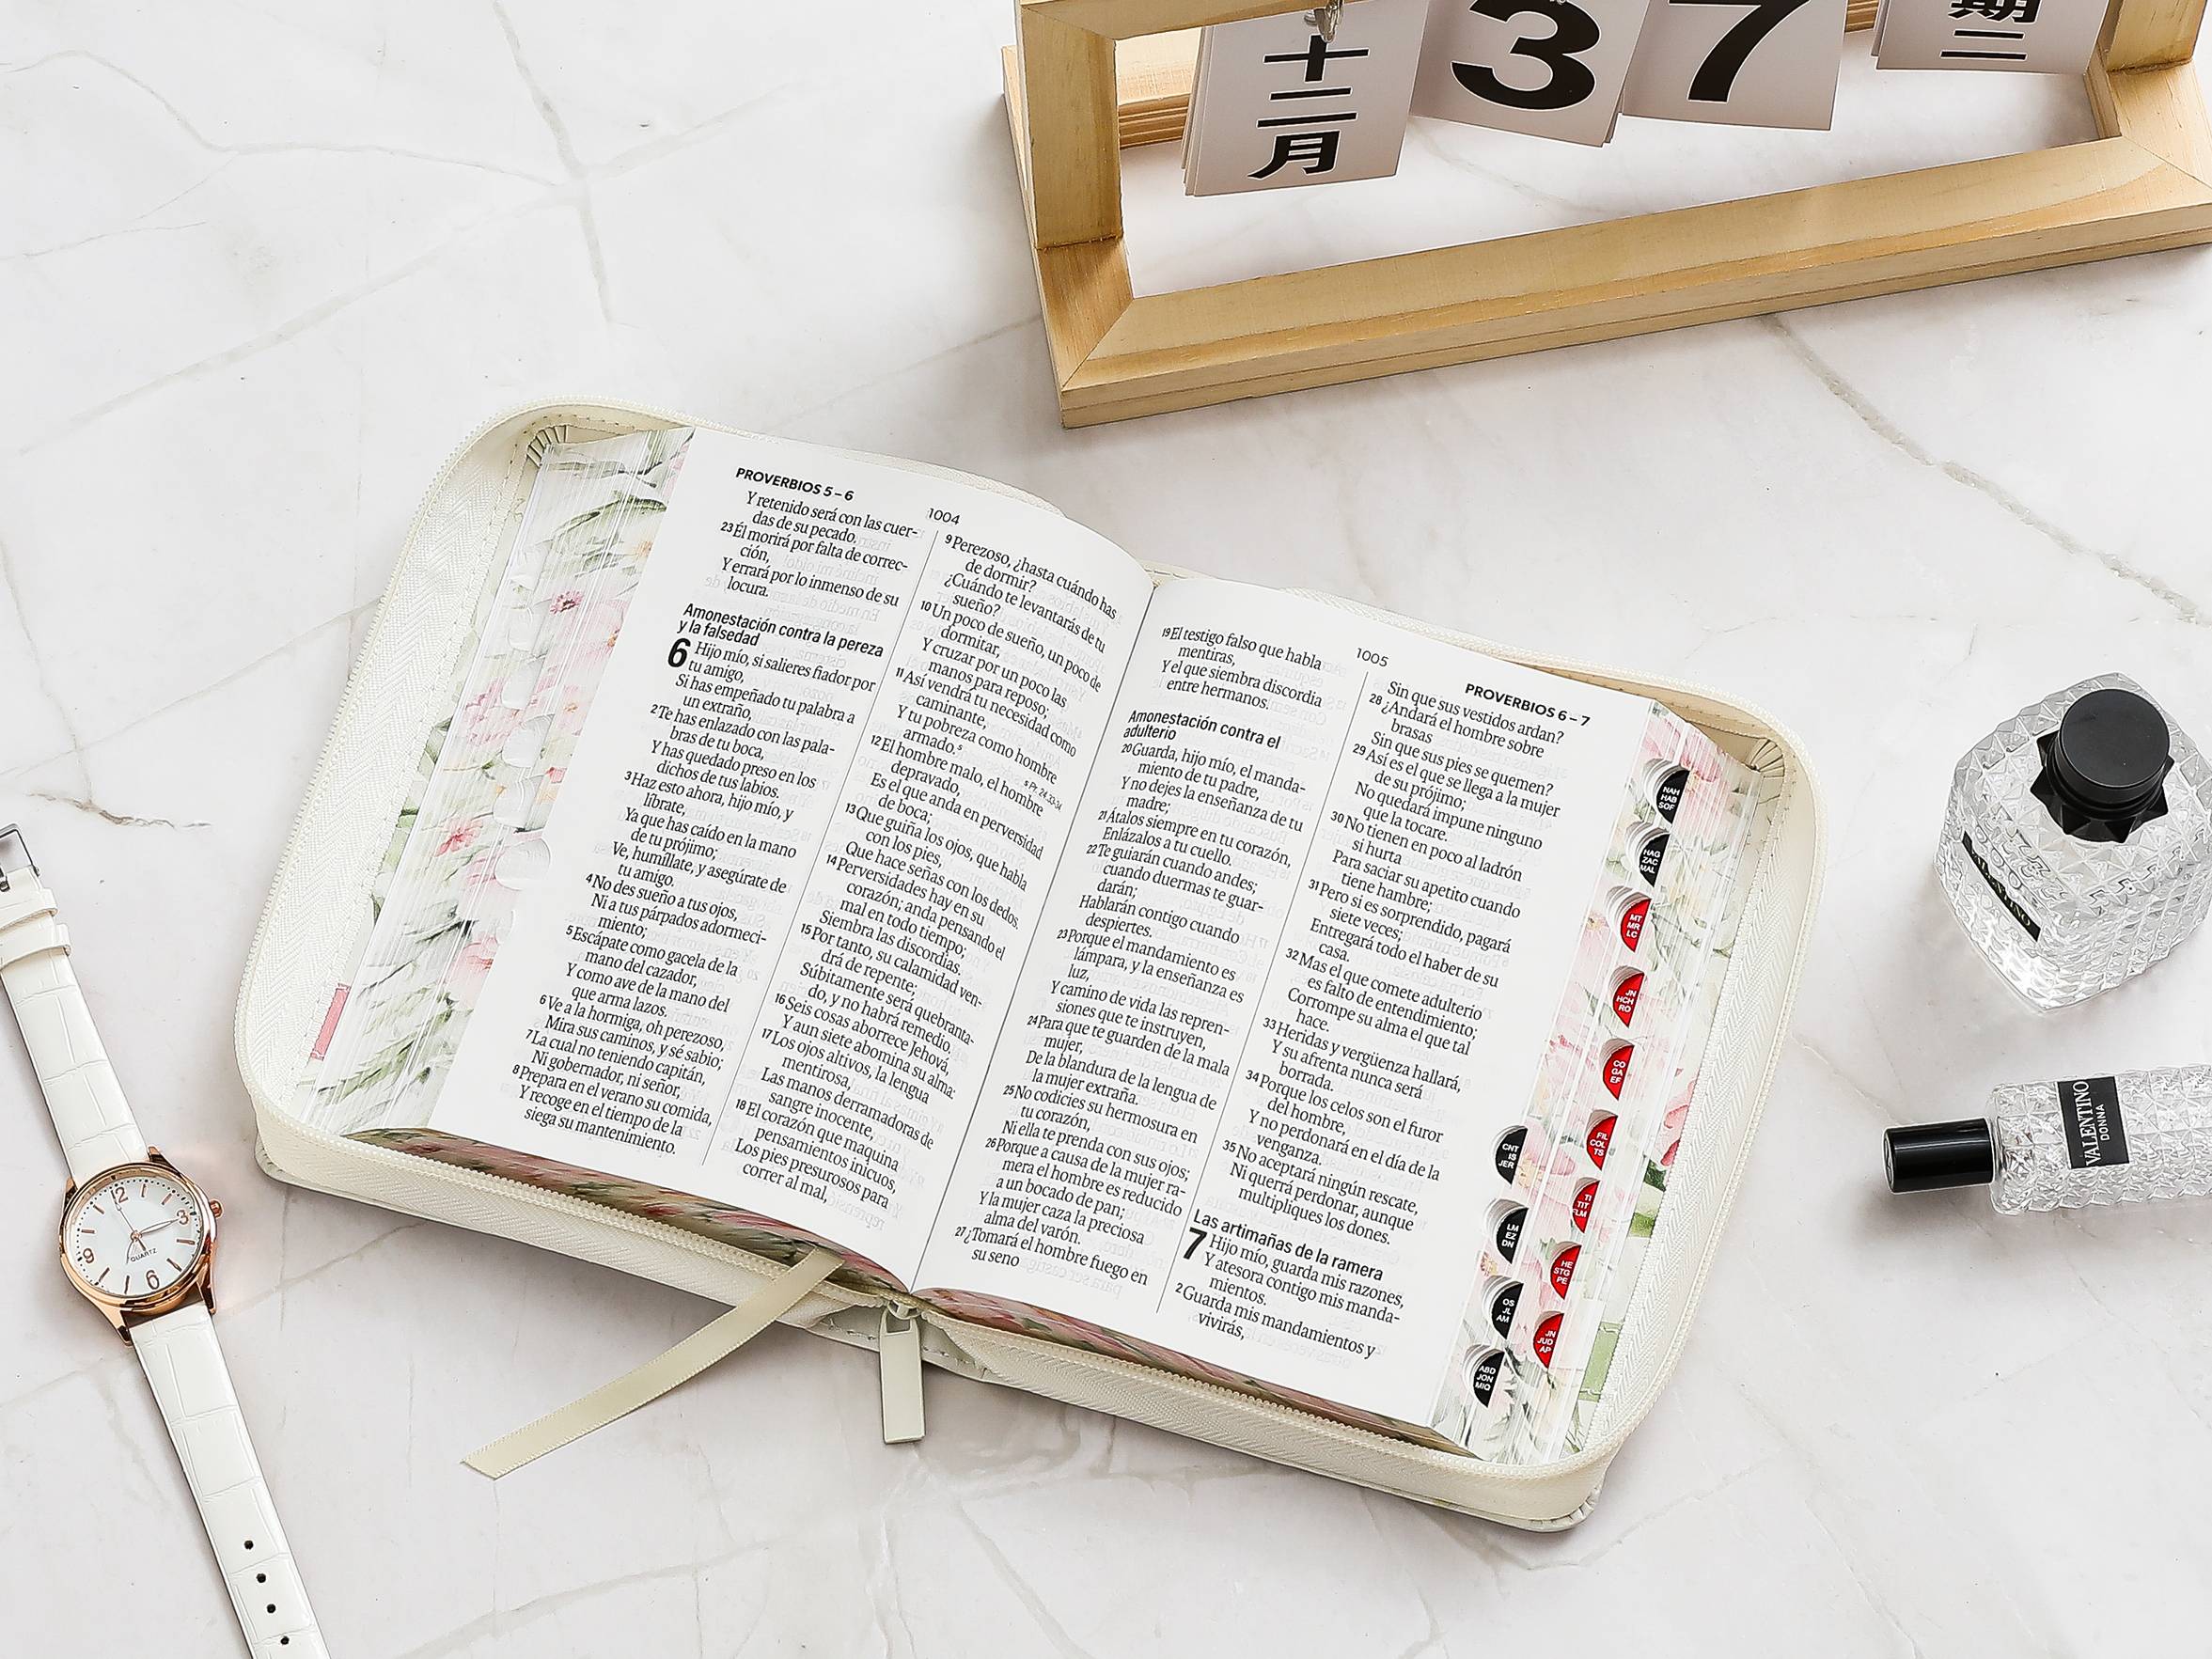 十二月
3
7
期二
PROVERBIOS 5 – 6
1004
Y retenido será con las cuer-
das de su pecado.
23 Él morirá por falta de correc-
ción,
Y errará por lo inmenso de su
locura.
Amonestación contra la pereza
y la falsedad
6 Hijo mío, si salieres fiador por
tu amigo,
Si has empeñado tu palabra a
un extraño,
2 Te has enlazado con las pala-
bras de tu boca,
Y has quedado preso en los
dichos de tus labios.
3 Haz esto ahora, hijo mío, y
líbrate,
Ya que has caído en la mano
de tu prójimo;
Ve, humíllate, y asegúrate de
tu amigo.
4 No des sueño a tus ojos,
Ni a tus párpados adormeci-
miento;
5 Escápate como gacela de la
mano del cazador,
Y como ave de la mano del
que arma lazos.
6 Ve a la hormiga, oh perezoso,
Mira sus caminos, y sé sabio;
7 La cual no teniendo capitán,
Ni gobernador, ni señor,
8 Prepara en el verano su comida,
Y recoge en el tiempo de la
siega su mantenimiento.
9 Perezoso, ¿hasta cuándo has
de dormir?
¿Cuándo te levantarás de tu
sueño?
10 Un poco de sueño, un poco de
dormitar,
Y cruzar por un poco las
manos para reposo;
11 Así vendrá tu necesidad como
caminante,
Y tu pobreza como hombre
armado.s
s Pr. 24.33-34
12 El hombre malo, el hombre
depravado,
Es el que anda en perversidad
de boca;
13 Que guiña los ojos, que habla
con los pies,
Que hace señas con los dedos.
14 Perversidades hay en su
corazón; anda pensando el
mal en todo tiempo;
Siembra las discordias.
15 Por tanto, su calamidad ven-
drá de repente;
Súbitamente será quebranta-
do, y no habrá remedio.
16 Seis cosas aborrece Jehová,
Y aun siete abomina su alma:
17 Los ojos altivos, la lengua
mentirosa,
Las manos derramadoras de
sangre inocente,
18 El corazón que maquina
pensamientos inicuos,
Los pies presurosos para
correr al mal,
1005
PROVERBIOS 6 – 7
19 El testigo falso que habla
mentiras,
Y el que siembra discordia
entre hermanos.
Amonestación contra el
adulterio
20 Guarda, hijo mío, el manda-
miento de tu padre,
Y no dejes la enseñanza de tu
madre;
21 Átalos siempre en tu corazón,
Enlázalos a tu cuello.
22 Te guiarán cuando andes;
cuando duermas te guar-
darán;
Hablarán contigo cuando
despiertes.
23 Porque el mandamiento es
lámpara, y la enseñanza es
luz,
Y camino de vida las repren-
siones que te instruyen,
24 Para que te guarden de la mala
mujer,
De la blandura de la lengua de
la mujer extraña.
25 No codicies su hermosura en
tu corazón,
Ni ella te prenda con sus ojos;
26 Porque a causa de la mujer ra-
mera el hombre es reducido
a un bocado de pan;
Y la mujer caza la preciosa
alma del varón.
27 ¿Tomará el hombre fuego en
su seno
Sin que sus vestidos ardan?
28 ¿Andará el hombre sobre
brasas
Sin que sus pies se quemen?
29 Así es el que se llega a la mujer
de su prójimo;
No quedará impune ninguno
que la tocare.
30 No tienen en poco al ladrón
si hurta
Para saciar su apetito cuando
tiene hambre;
31 Pero si es sorprendido, pagará
siete veces;
Entregará todo el haber de su
casa.
32 Mas el que comete adulterio
es falto de entendimiento;
Corrompe su alma el que tal
hace.
33 Heridas y vergüenza hallará,
Y su afrenta nunca será
borrada.
34 Porque los celos son el furor
del hombre,
Y no perdonará en el día de la
venganza.
35 No aceptará ningún rescate,
Ni querrá perdonar, aunque
multipliques los dones.
Las artimañas de la ramera
7 Hijo mío, guarda mis razones,
Y atesora contigo mis manda-
mientos.
2 Guarda mis mandamientos y
vivirás,
NAH
HAB
SOF
HAG
ZAC
MAL
MT
MR
LC
JN
HCH
RO
CO
GA
EF
FIL
COL
TS
TI
TIT
FLM
HE
STG
PE
JN
JUD
AP
CNT
IS
JER
LM
EZ
DN
OS
JL
AM
ABD
JON
MIQ
12
3
6
9
QUARTZ
VALENTINO
VALENTINO
DONNA